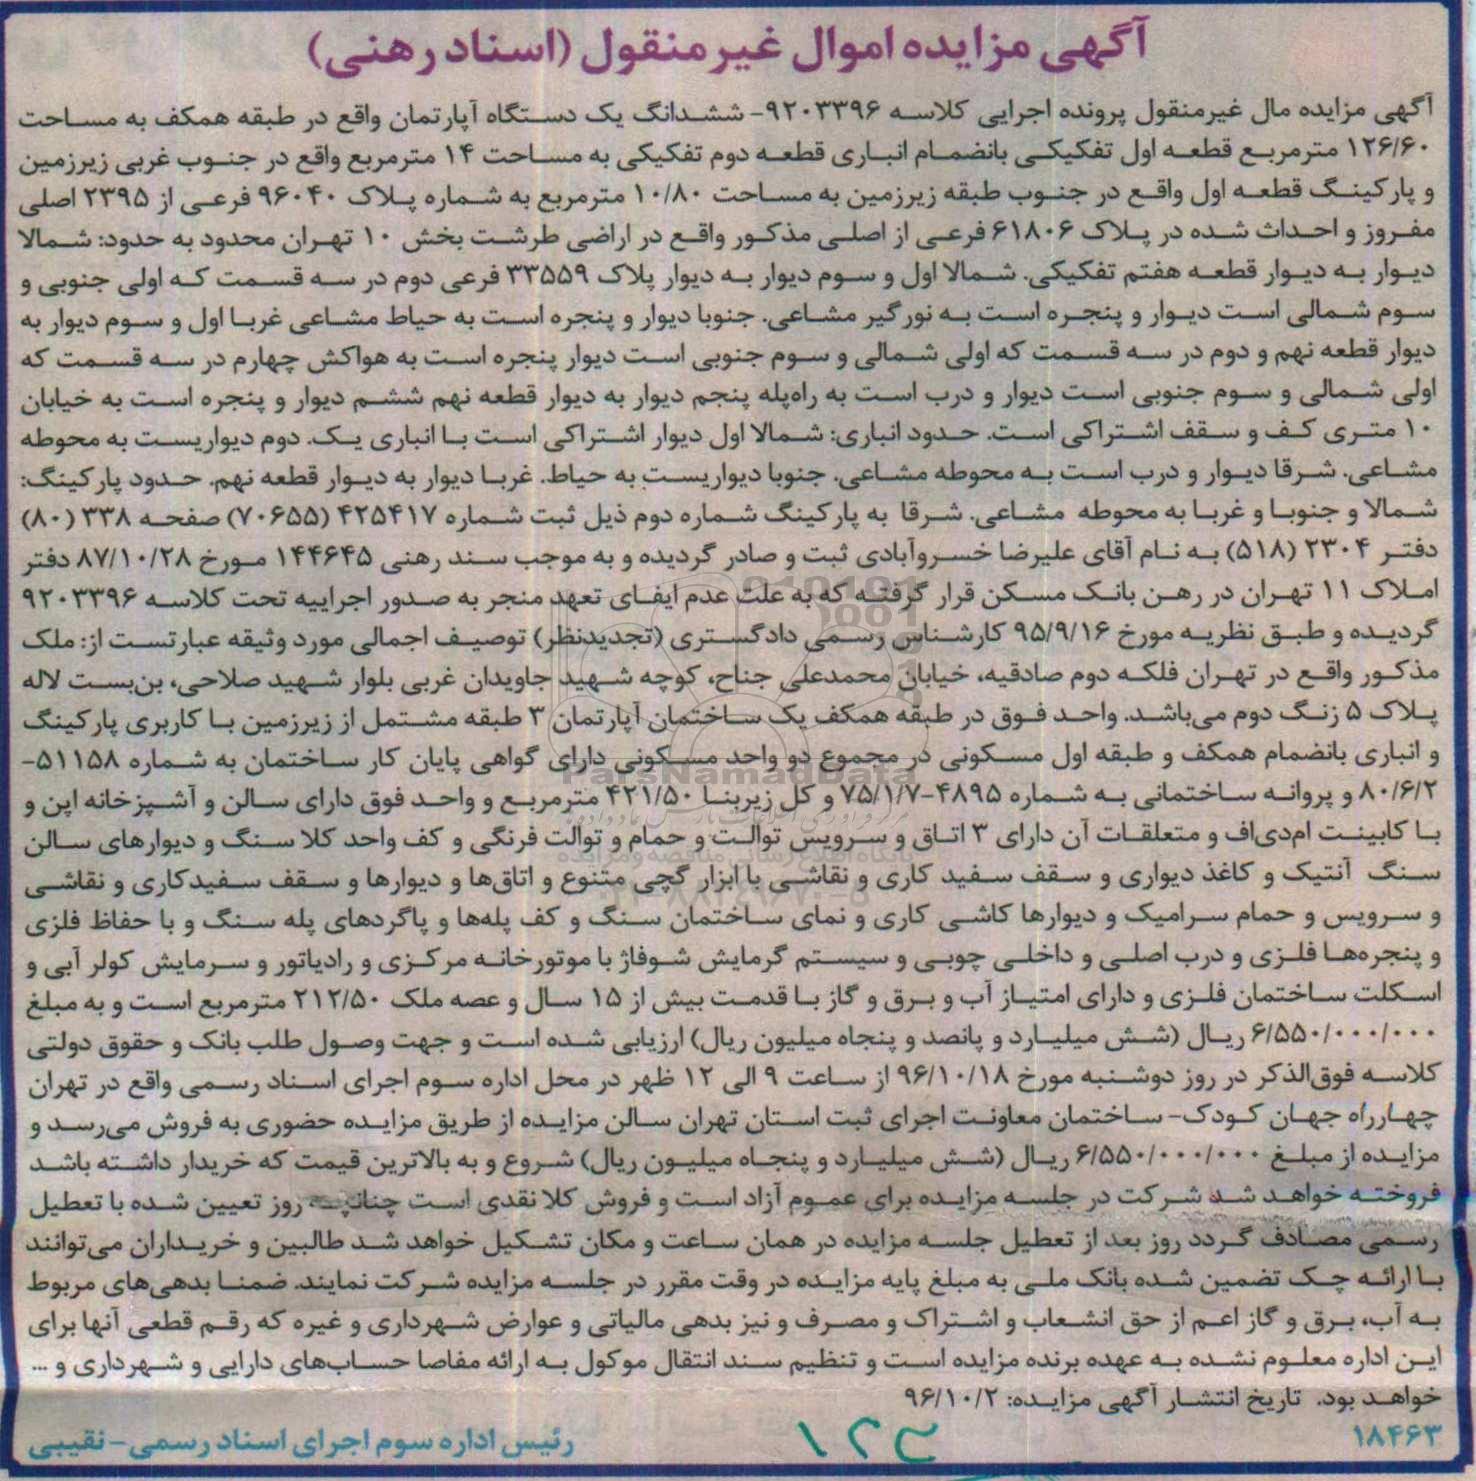 آگهی مزایده اموال غیرمنقول (اسناد رهنی)
آگهی مزایده مال غیرمنقول پرونده اجرایی کلاسه ۹۲۰۳۳۹۶- ششدانگ یک دستگاه آپارتمان واقع در طبقه همکف به مساحت
۱۲۶/۶۰ مترمربع قطعه اول تفکیکی بانضمام انباری قطعه دوم تفکیکی به مساحت ۱۴ مترمربع واقع در جنوب غربی زیرزمین
و پارکینگ قطعه اول واقع در جنوب طبقه زیرزمین به مساحت ۱۰/۸۰ مترمربع به شماره پلاک ۹۶۰۴۰ فرعی از ۲۳۹۵ اصلی
مفروز و احداث شده در پلاک ۶۱۸۰۶ فرعی از اصلی مذکور واقع در اراضی طرشت بخش ۱۰ تهران محدود به حدود: شمالا
دیوار به دیوار قطعه هفتم تفکیکی. شمالا اول و سوم دیوار به دیوار پلاک ۳۳۵۵۹ فرعی دوم در سه قسمت که اولی جنوبی و
سوم شمالی است دیوار و پنجره است به نورگیر مشاعی. جنوبا دیوار و پنجره است به حیاط مشاعی غربا اول و سوم دیوار به
دیوار قطعه نهم و دوم در سه قسمت که اولی شمالی و سوم جنوبی است دیوار پنجره است به هواکش چهارم در سه قسمت که
اولی شمالی و سوم جنوبی است دیوار و درب است به راه‌پله پنجم دیوار به دیوار قطعه نهم ششم دیوار و پنجره است به خیابان
۱۰ متری کف و سقف اشتراکی است. حدود انباری: شمالا اول دیوار اشتراکی است با انباری یک. دوم دیواریست به محوطه
مشاعی. شرقا دیوار و درب است به محوطه مشاعی. جنوبا دیواریست به حیاط. غربا دیوار به دیوار قطعه نهم. حدود پارکینگ:
شمالا و جنوبا و غربا به محوطه مشاعی. شرقا به پارکینگ شماره دوم ذیل ثبت شماره ۴۲۵۴۱۷ (۷۰۶۵۵) صفحه ۳۳۸ (۸۰)
دفتر ۲۳۰۴ (۵۱۸) به نام آقای علیرضا خسروآبادی ثبت و صادر گردیده و به موجب سند رهنی ۱۴۴۶۴۵ مورخ ۸۷/۱۰/۲۸ دفتر
املاک ۱۱ تهران در رهن بانک مسکن قرار گرفته که به علت عدم ایفای تعهد منجر به صدور اجراییه تحت کلاسه ۹۲۰۳۳۹۶
گردیده و طبق نظریه مورخ ۹۵/۹/۱۶ کارشناس رسمی دادگستری (تجدیدنظر) توصیف اجمالی مورد وثیقه عبارتست از: ملک
مذکور واقع در تهران فلکه دوم صادقیه، خیابان محمدعلی جناح، کوچه شهید جاویدان غربی بلوار شهید صلاحی، بن‌بست لاله
پلاک ۵ زنگ دوم می‌باشد. واحد فوق در طبقه همکف یک ساختمان آپارتمان ۳ طبقه مشتمل از زیرزمین با کاربری پارکینگ
و انباری بانضمام همکف و طبقه اول مسکونی در مجموع دو واحد مسکونی دارای گواهی پایان کار ساختمان به شماره ۵۱۱۵۸-
۸۰/۶/۲ و پروانه ساختمانی به شماره ۴۸۹۵-۷۵/۱/۷ و کل زیربنا ۴۲۱/۵۰ مترمربع و واحد فوق دارای سالن و آشپزخانه اپن و
با کابینت ام‌دی‌اف و متعلقات آن دارای ۳ اتاق و سرویس توالت و حمام و توالت فرنگی و کف واحد کلا سنگ و دیوارهای سالن
سنگ آنتیک و کاغذ دیواری و سقف سفید کاری و نقاشی با ابزار گچی متنوع و اتاق‌ها و دیوارها و سقف سفیدکاری و نقاشی
و سرویس و حمام سرامیک و دیوارها کاشی کاری و نمای ساختمان سنگ و کف پله‌ها و پاگردهای پله سنگ و با حفاظ فلزی
و پنجره‌ها فلزی و درب اصلی و داخلی چوبی و سیستم گرمایش شوفاژ با موتورخانه مرکزی و رادیاتور و سرمایش کولر آبی و
اسکلت ساختمان فلزی و دارای امتیاز آب و برق و گاز با قدمت بیش از ۱۵ سال و عصه ملک ۲۱۲/۵۰ مترمربع است و به مبلغ
۶/۵۵۰/۰۰۰/۰۰۰ ریال (شش میلیارد و پانصد و پنجاه میلیون ریال) ارزیابی شده است و جهت وصول طلب بانک و حقوق دولتی
کلاسه فوق‌الذکر در روز دوشنبه مورخ ۹۶/۱۰/۱۸ از ساعت ۹ الی ۱۲ ظهر در محل اداره سوم اجرای اسناد رسمی واقع در تهران
چهارراه جهان کودک- ساختمان معاونت اجرای ثبت استان تهران سالن مزایده از طریق مزایده حضوری به فروش می‌رسد و
مزایده از مبلغ ۶/۵۵۰/۰۰۰/۰۰۰ ریال (شش میلیارد و پنجاه میلیون ریال) شروع و به بالاترین قیمت که خریدار داشته باشد
فروخته خواهد شد شرکت در جلسه مزایده برای عموم آزاد است و فروش کلا نقدی است چنانچه روز تعیین شده با تعطیل
رسمی مصادف گردد روز بعد از تعطیل جلسه مزایده در همان ساعت و مکان تشکیل خواهد شد طالبین و خریداران می‌توانند
با ارائه چک تضمین شده بانک ملی به مبلغ پایه مزایده در وقت مقرر در جلسه مزایده شرکت نمایند. ضمنا بدهی‌های مربوط
به آب، برق و گاز اعم از حق انشعاب و اشتراک و مصرف و نیز بدهی مالیاتی و عوارض شهرداری و غیره که رقم قطعی آنها برای
این اداره معلوم نشده به عهده برنده مزایده است و تنظیم سند انتقال موکول به ارائه مفاصا حساب‌های دارایی و شهرداری و ...
خواهد بود. تاریخ انتشار آگهی مزایده: ۹۶/۱۰/۲
۱۸۴۶۳
رئیس اداره سوم اجرای اسناد رسمی- نقیبی
ParsNamadData